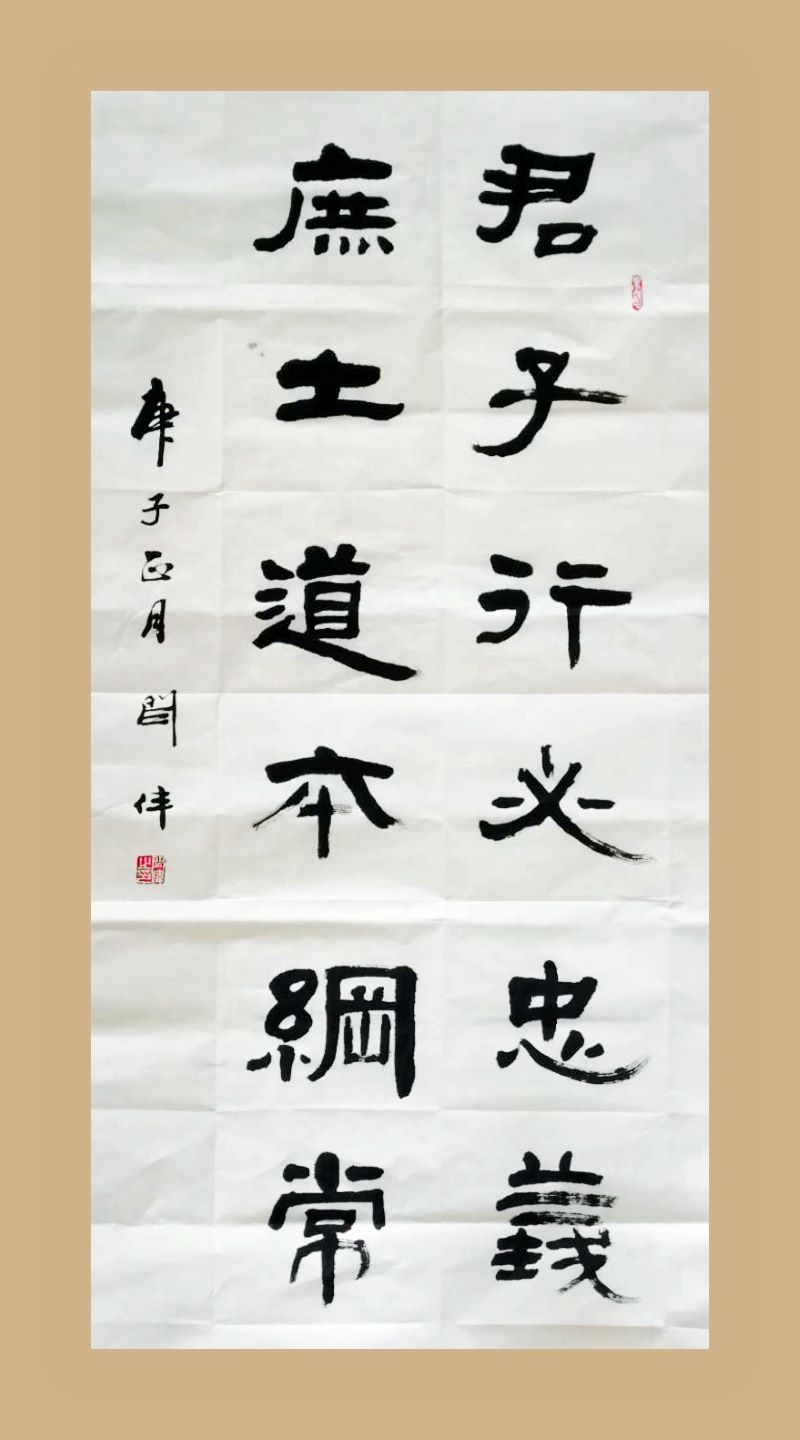 君子行必忠義
庶士道本綱常
庚子正月 闫伟